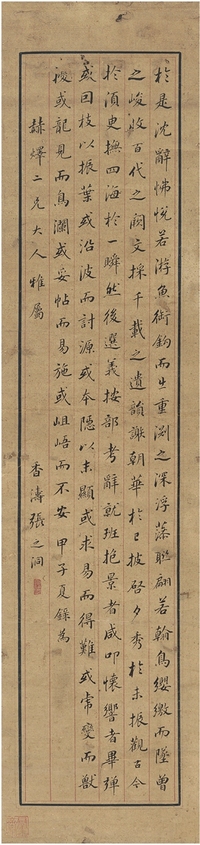 於是沈辭怫悅若游魚銜鉤而出重淵之深浮藻聯翩若翰鳥纓繳而墜曾
之峻收百代之闕文採千載之遺韻謝朝華於已披啓夕秀於未振觀古今
於須臾撫四海於一瞬然後選義按部考辭就班抱景者咸叩懷響者畢彈
或因枝以振葉或沿波而討源或本隱以末顯或求易而得難或
而獸
或龍見而鳥瀾或妥帖而易施或岨峿而不安甲子夏錄為
二兄大人雅屬
香濤張之洞